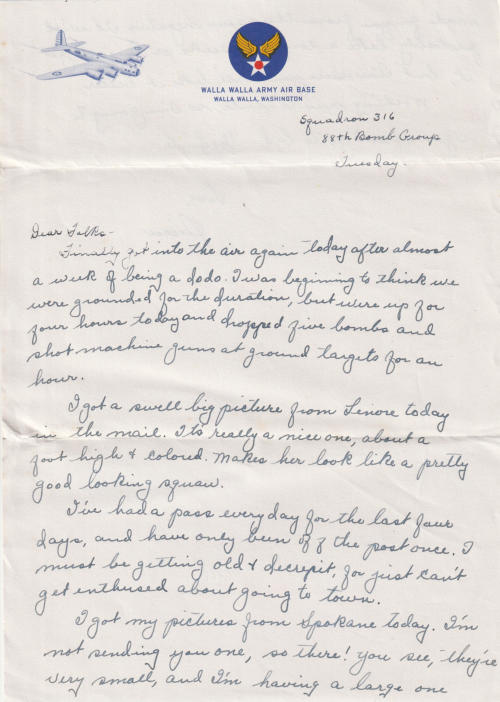 WALLA WALLA ARMY AIR BASE
WALLA WALLA, WASHINGTON
Squadron 316
88th Bomb Group
Tuesday.
Dear Folks-
Finally got into the air again today after almost
a week of being a dodo. I was begining to think we
were grounded for the duration, but were up for
four hours today and dropped five bombs and
shot machine guns at ground targets for an
hour.
I got a swell big picture from Lenore today
in the mail. It's really a nice one, about a
foot high & colored. Makes her look like a pretty
good looking squaw.
I've had a pass everyday for the last four
days, and have only been off the post once. I
must be getting old & decrepit, for just can't
get enthused about going to town.
I got my pictures from Spokane today. I'm
not sending you one, so there! You see, they're
very small, and I'm having a large one